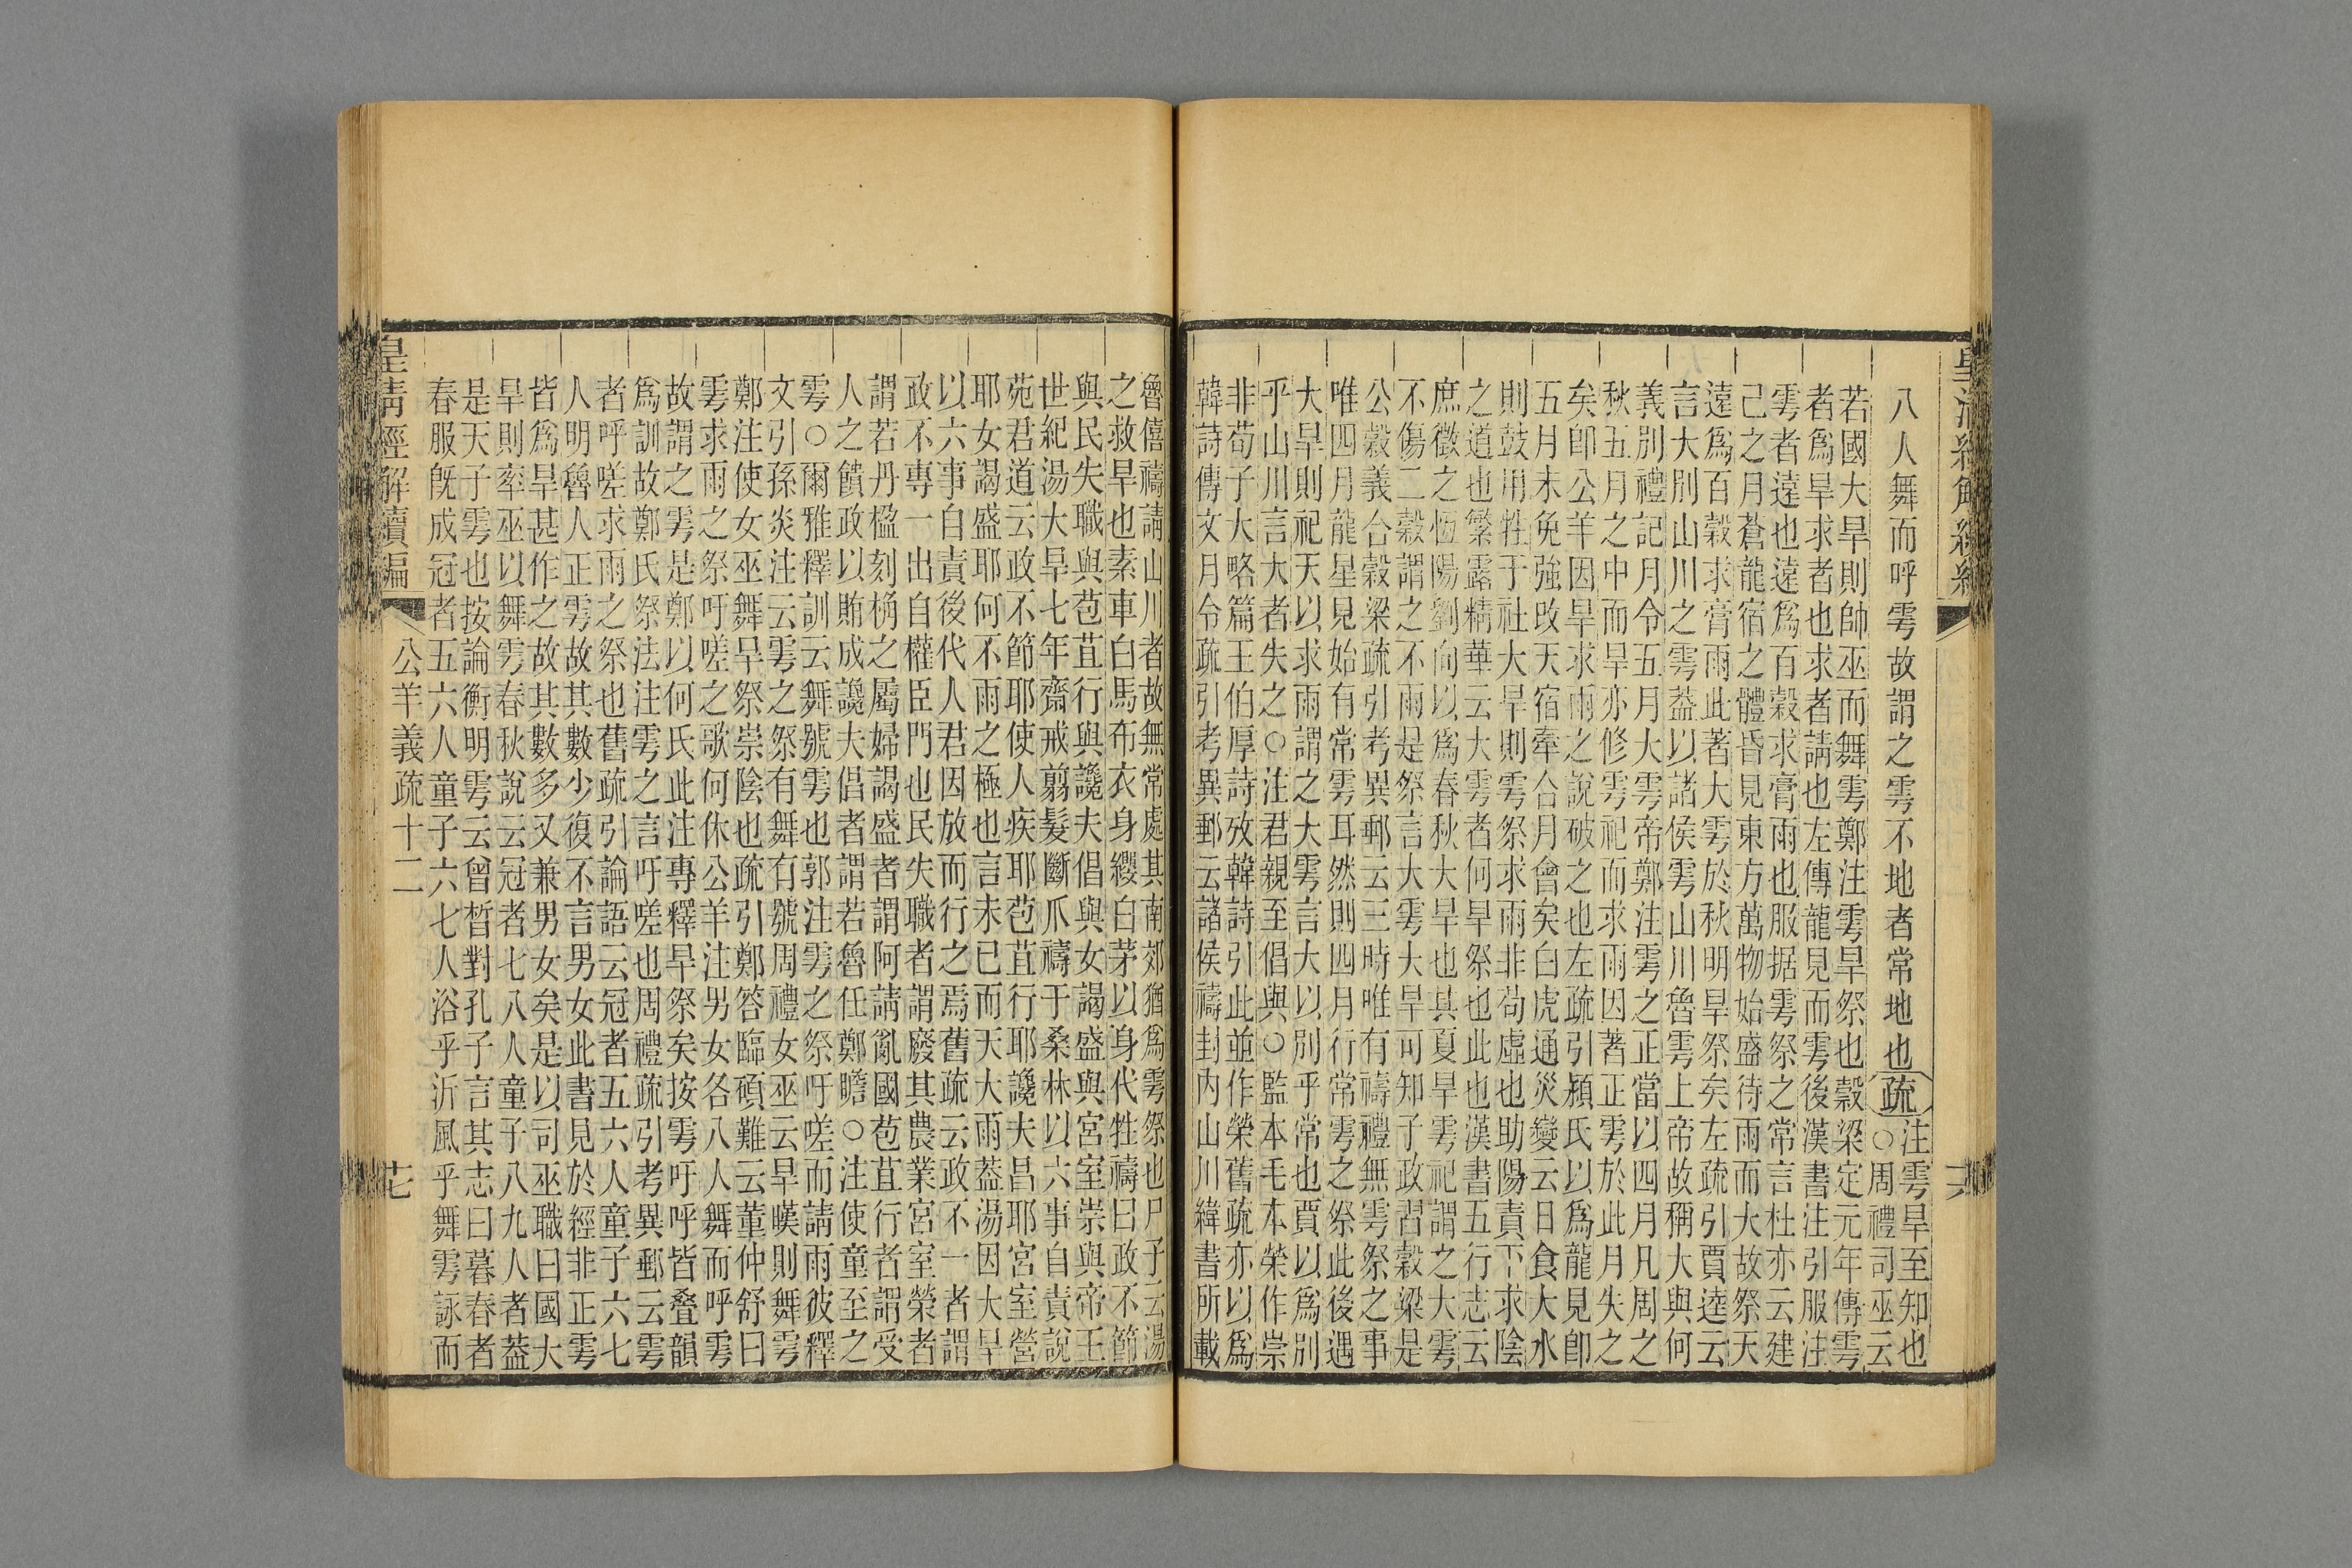 八人舞而呼雩故謂之雩不地者常地也疏注雩旱至知也
○周禮司巫云
若國大旱則帥巫而舞雩鄭注雩旱祭也穀梁定元年傳雩
者為旱求者也求者請也左傳龍見而雩後漢書注引服注
雩者遠也遠為百穀求膏雨也服据雩祭之常言杜亦云建
己之月蒼龍宿之體昏見東方萬物始盛待雨而大故祭天
遠為百穀求膏雨此著大雩於秋明旱祭矣左疏引賈逵云
言大別山川之雩葢以諸侯雩山川魯雩上帝故稱大與何
義別禮記月令五月大雩帝鄭注雩之正當以四月凡周之
秋五月之中而旱亦修雩祀而求雨因著正雩於此月失之
矣卽公羊因旱求雨之說破之也左疏引潁氏以為龍見卽
五月未免強改天宿牽合月會矣白虎通災變云日食大水
則鼓用牲于社大旱則雩祭求雨非苟虛也助陽責下求陰
之道也繁露精華云大雩者何旱祭也此也漢書五行志云
庶徵之恆陽劉向以為春秋大旱也其夏旱雩祀謂之大雩
不傷二穀謂之不雨是祭言大雩大旱可知子政習穀梁是
公穀義合穀梁疏引考異郵云三時唯有禱禮無雩祭之事
唯四月龍星見始有常雩耳然則四月行常雩之祭此後遇
大旱則祀天以求雨謂之大雩言大以別乎常也賈以為別
乎山川言大者失之○注君親至倡與○監本毛本榮作崇
非荀子大略篇王伯厚詩攷韓詩引此並作榮舊疏亦以為
韓詩傳文月令疏引考異郵云諸侯禱封内山川緯書所載
魯僖禱請山川者故無常處其南郊猶為雩祭也尸子云湯
之救旱也素車白馬布衣身纓白茅以身代牲禱曰政不節
與民失職與苞苴行與讒夫倡與女謁盛與宮室崇與帝王
世紀湯大旱七年齋戒翦髮斷爪禱于桑林以六事自責說
苑君道云政不節耶使人疾耶苞苴行耶讒夫昌耶宮室營
耶女謁盛耶何不雨之極也言未已而天大雨葢湯因大旱
以六事自責後代人君因放而行之焉舊疏云政不一者謂
政不專一出自權臣門也民失職者謂廢其農業宮室榮者
謂若丹楹刻桷之屬婦謁盛者謂阿請亂國苞苴行者謂受
人之饋政以賄成讒夫倡者謂若魯任鄭瞻○注使童至之
雩○爾雅釋訓云舞號雩也郭注雩之祭吁嗟而請雨彼釋
文引孫炎注云雩之祭有舞有號周禮女巫云旱暵則舞雩
鄭注使女巫舞旱祭崇陰也疏引鄭答臨碩難云董仲舒曰
雩求雨之祭吁嗟之歌何休公羊注男女各八人舞而呼雩
故謂之雩是鄭以何氏此注專釋旱祭矣按雩吁呼皆疊韻
為訓故鄭氏祭法注雩之言吁嗟也周禮疏引考異郵云雩
者呼嗟求雨之祭也舊疏引論語云冠者五六人童子六七
人明魯人正雩故其數少復不言男女此書見於經非正雩
皆為旱甚作之故其數多又兼男女矣是以司巫職曰國大
旱則率巫以舞雩春秋說云冠者七八人童子八九人者葢
是天子雩也按論衡明雩云曾晳對孔子言其志曰暮春者
春服旣成冠者五六人童子六七人浴乎沂風乎舞雩詠而
皇清經解續編
公羊義疏十二